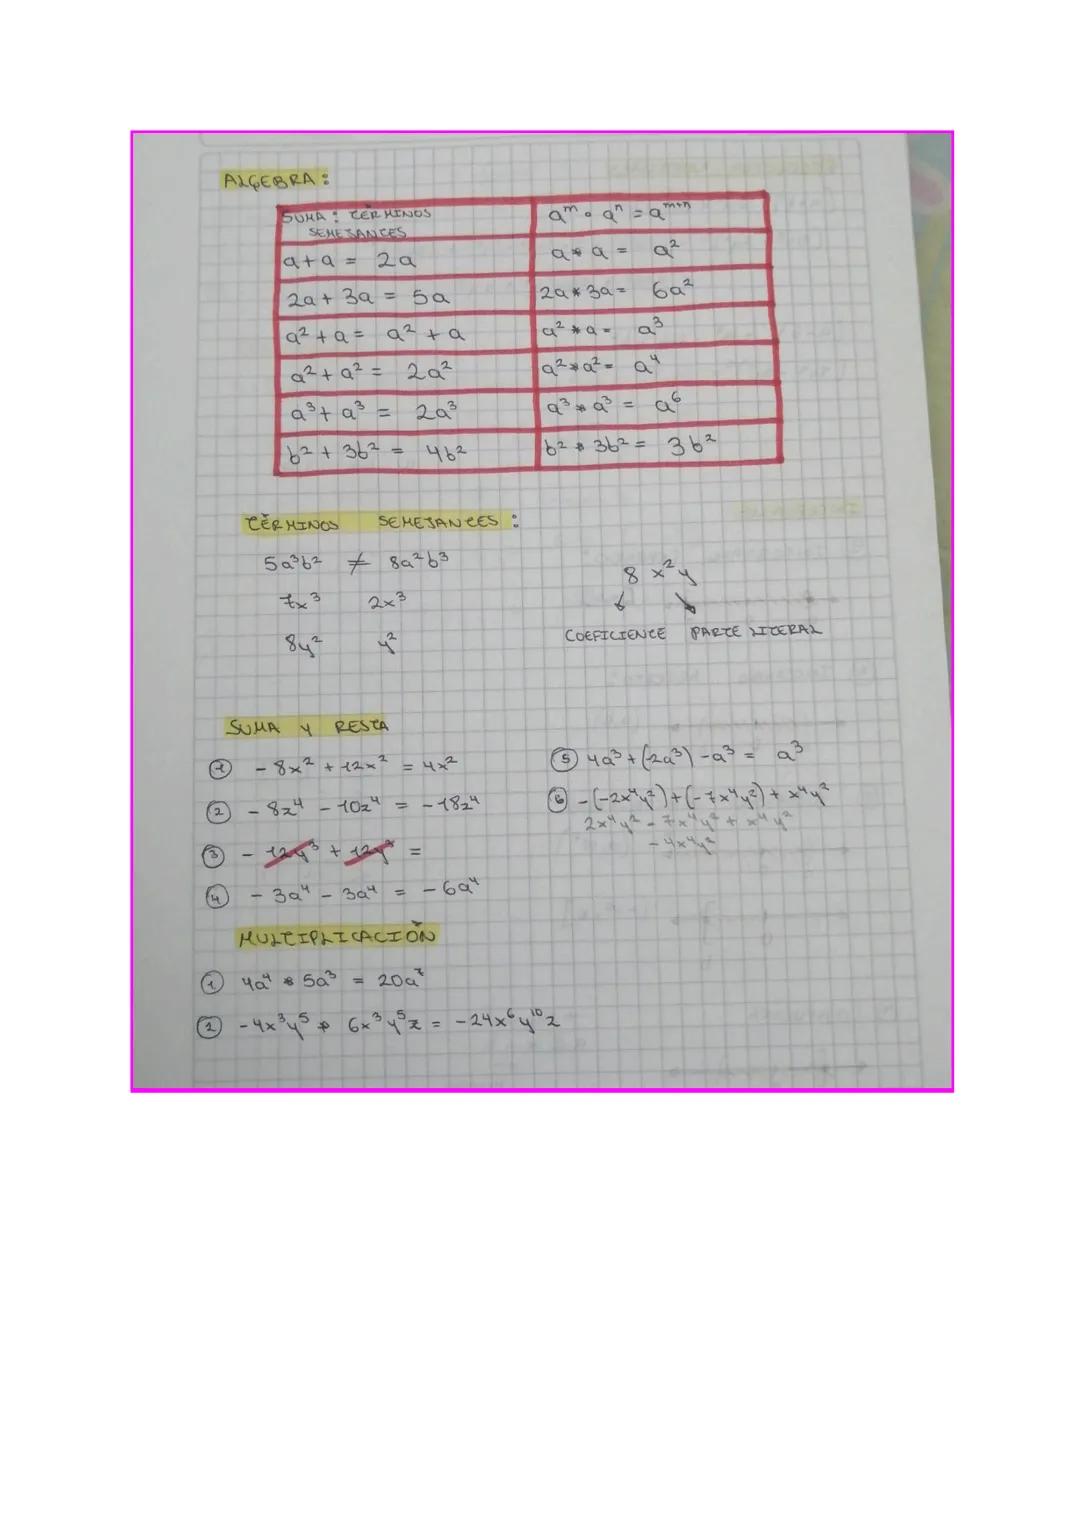 ALGEBRA:
SUMA: TÉRMINOS SEMEJANTES
a^m · a^n = a^m+n
a+a = 2a
a * a = a²
2a + 3a = 5a
2a * 3a = 6a²
a² + a = a² + a
a² * a = a³
a² + a² = 2a²
a² * a² = a⁴
a³ + a³ = 2a³
a³ * a³ = a⁶
b² + 3b² = 4b²
b² * 3b² = 3b²
TÉRMINOS SEMEJANTES:
5a³b² ≠ 8a²b³
7x³ 2x³
8y² y²
8 x²y
COEFICIENTE PARTE LITERAL
SUMA Y RESTA
① - 8x² + 12x² = 4x²
② - 8z⁴ - 10z⁴ = -18z⁴
③ - 12y³ + 12y³ =
④ - 3a⁴ - 3a⁴ = - 6a⁴
⑤ 4a³ + (-2a³) - a³ = a³
⑥ - (-2x⁴y²) + (-7x⁴y²) + x⁴y²
2x⁴y² - 7x⁴y² + x⁴y²
- 4x⁴y²
MULTIPLICACIÓN
① 4a⁴ * 5a³ = 20a⁷
② -4x³y⁵ * 6x³y⁵z = -24x⁶y¹⁰z